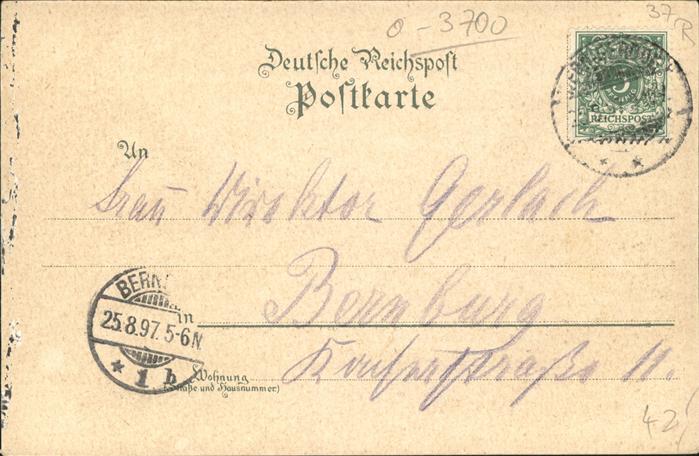 0-3700
37 R
Deutsche Reichspost
Postkarte
WERNIGERODE
5
REICHSPOST
An
Frau Direktor Gerlach
Bernburg
BERN
25.8.97. 5-6 N.
* 1 b
in
Wohnung
(Straße und Hausnummer)
straße 11.
42